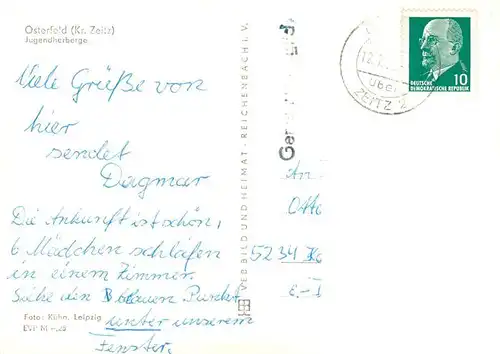 Osterfeld (Kr. Zeitz)
Jugendherberge
Viele Grüße von
hier
sendet
Dagmar
Die Ankunft ist schön,
6 Mädchen schlafen
in einem Zimmer.
Siehe den blauen Punkt
unter unserem
Fenster.
Foto: Kühn, Leipzig
VEB BILD UND HEIMAT · REICHENBACH I. V.
über
ZEITZ 2
10
DEUTSCHE
DEMOKRATISCHE REPUBLIK
An
Otto
5234